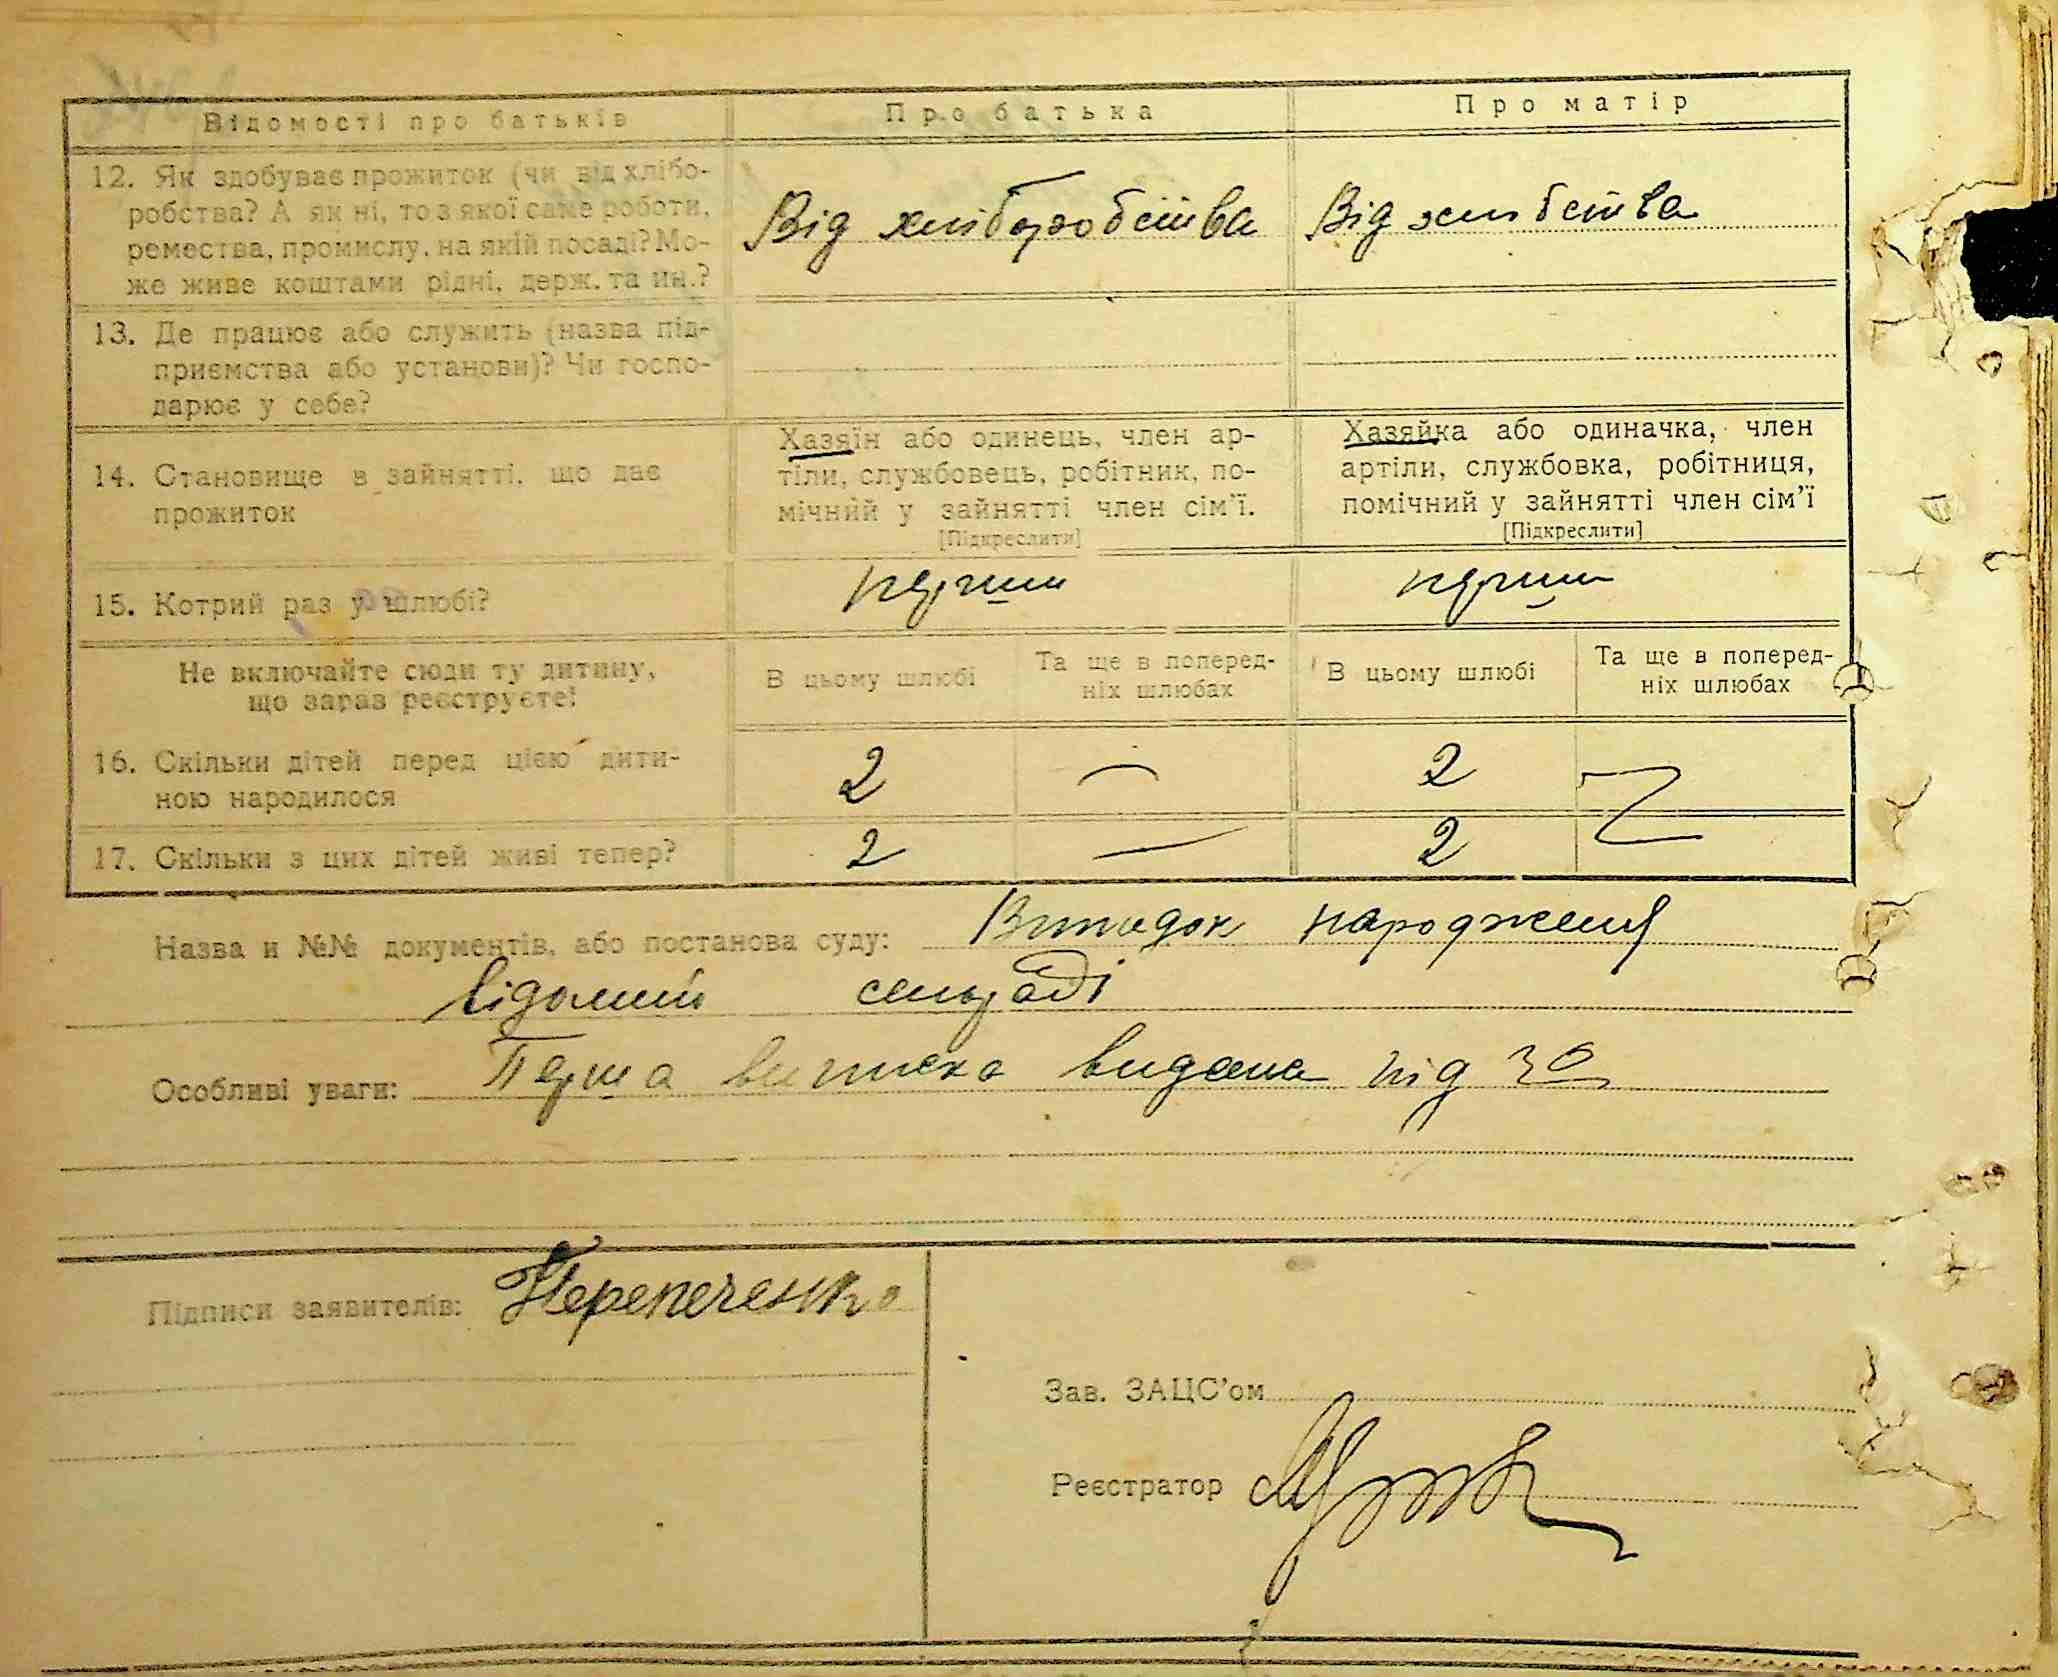 Відомості про батьків Про батька Про матір
12. Як здобуває прожиток (чи від хлібо-
робства? А як ні, то з якої саме роботи,
ремества, промислу, на якій посаді? Мо-
же живе коштами рідні, держ. та ин.?
Від хліборобства Від хлібства
13. Де працює або служить (назва під-
приємства або установи)? Чи госпо-
дарює у себе?
14. Становище в зайнятті, що дає
прожиток
Хазяїн або одинець, член ар-
тіли, службовець, робітник, по-
мічний у зайнятті член сім'ї.
[Підкреслити]
Хазяйка або одиначка, член
артіли, службовка, робітниця,
помічний у зайнятті член сім'ї
[Підкреслити]
15. Котрий раз у шлюбі? перший перший
Не включайте сюди ту дитину,
що зараз реєструєте!
В цьому шлюбі
Та ще в поперед-
ніх шлюбах
В цьому шлюбі
Та ще в поперед-
ніх шлюбах
16. Скільки дітей перед цією дити-
ною народилося
2 — 2 —
17. Скільки з цих дітей живі тепер? 2 — 2 —
Назва и №№ документів, або постанова суду: Випадок народження
відомий сельраді
Особливі уваги: Перша виписка видана під
Підписи заявителів: Перепеченко
Зав. ЗАЦС'ом
Реєстратор